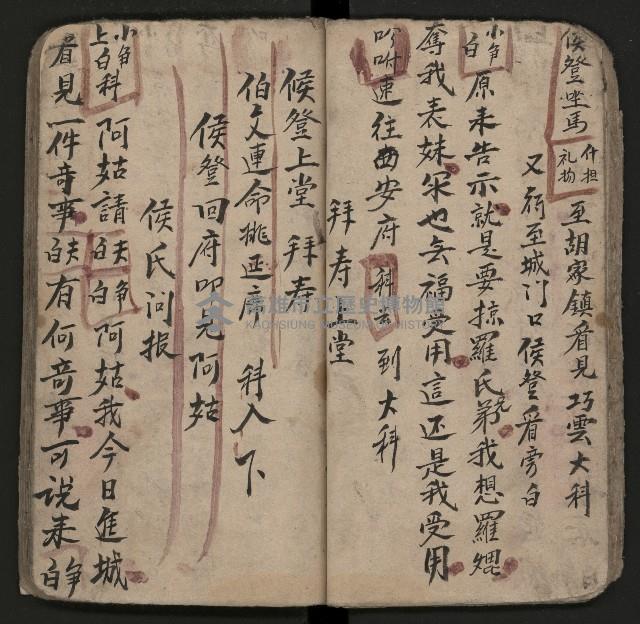 侯登坐馬 什担礼物 至胡家鎮看見巧雲大科
又行至城门口侯登看旁白
小争白 原来告示就是要掠羅氏兄弟我想羅焜
奪我表妹罙也無福受用這还是我受用
吩咐連往西安府 科 到大科
拜寿上堂
候登上堂 拜寿
伯父連命挑
科入下
侯登回府叩見阿姑
侯氏问报
小争上白科 阿姑請 夫白 争白 阿姑我今日進城
看見一件奇事 夫白 有何奇事可说来 争白
高雄市立歷史博物館
KAOHSIUNG MUSEUM OF HISTORY